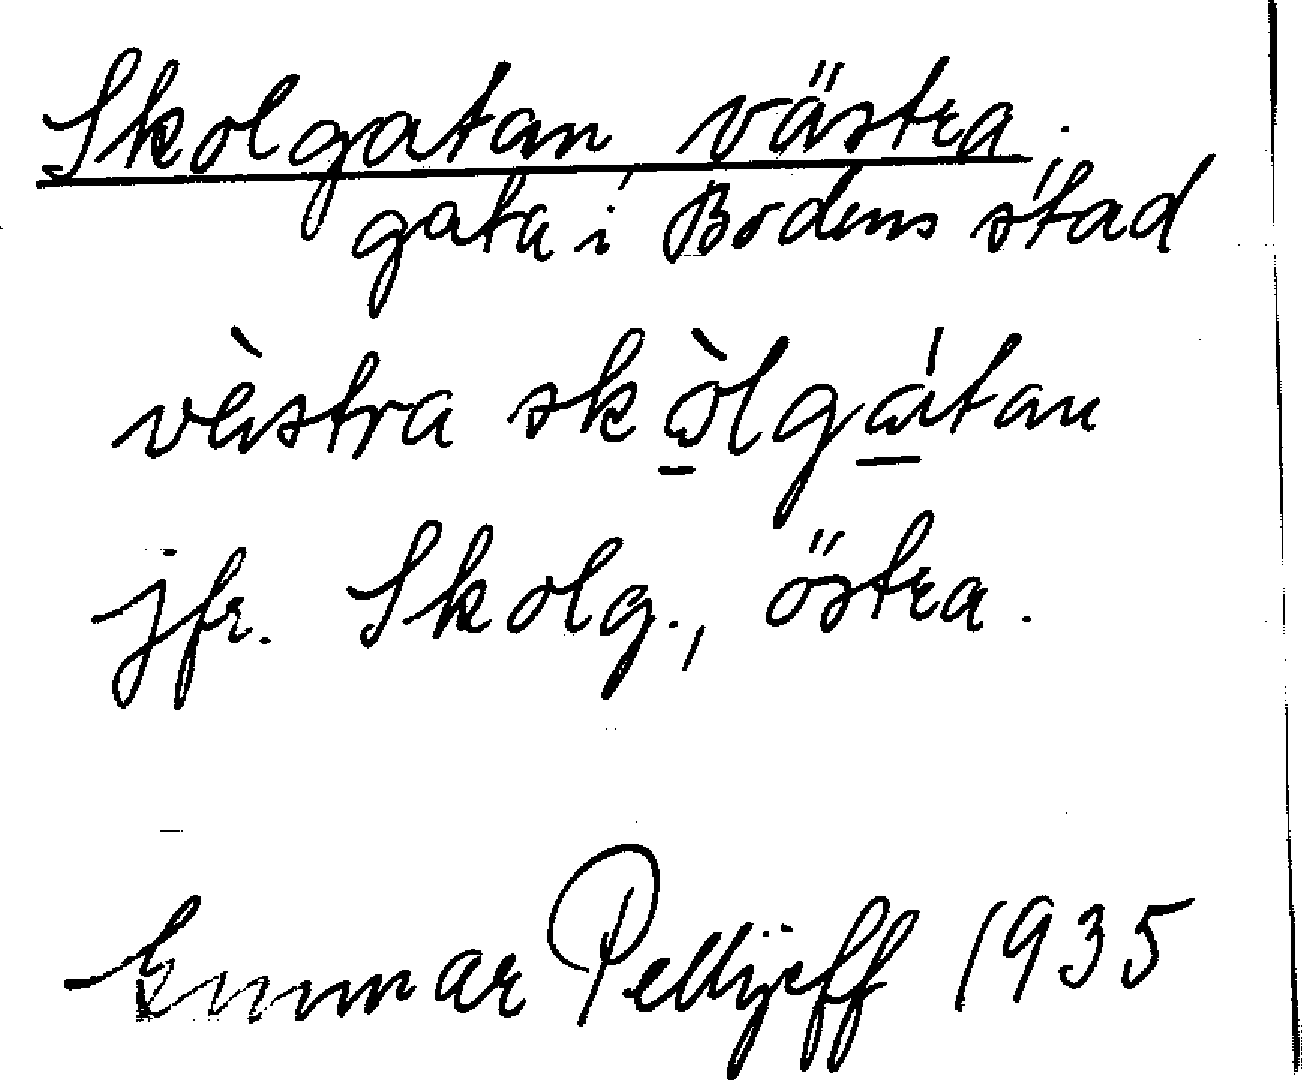 Skolgatan västra.
gata i Bodens stad
vèstra skò̱lgá̱tan
jfr. Skolg., östra.
Gunnar Pellijeff 1935